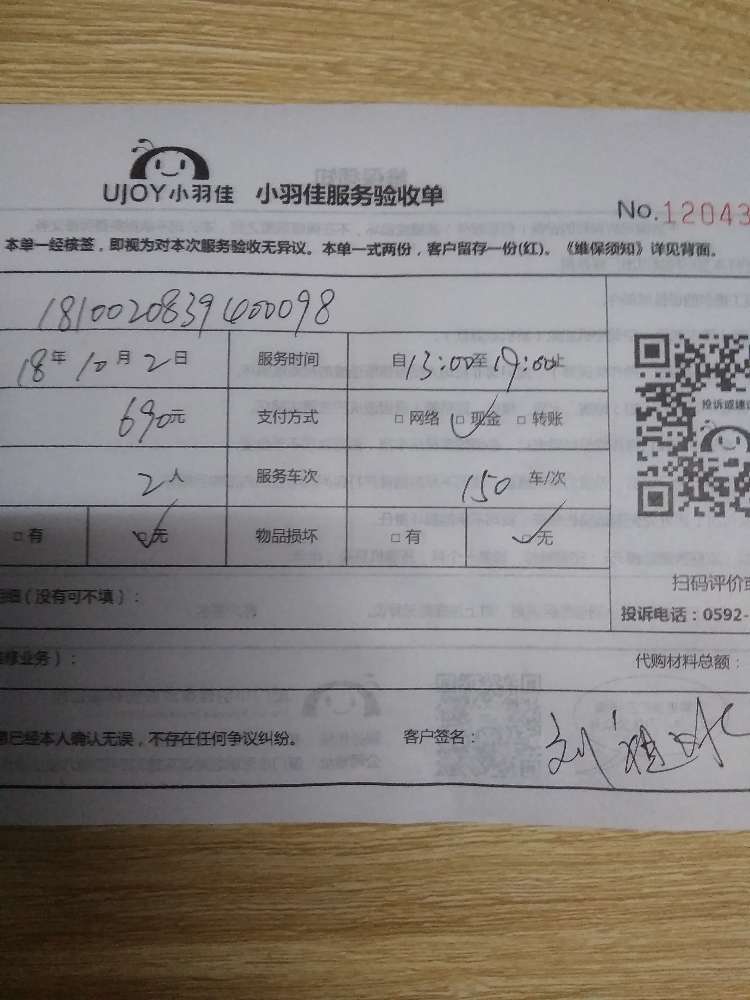 UJOY小羽佳 小羽佳服务验收单
No.12043
本单一经核签，即视为对本次服务验收无异议。本单一式两份，客户留存一份(红)。《维保须知》详见背面。
18年10月2日 服务时间 自13:00至19:00止
690元 支付方式 □网络 □现金 □转账
投诉或建议
2人 服务车次 150车/次
□有 □无 物品损坏 □有 □无
细（没有可不填）：
扫码评价或
投诉电话：0592-
修业务）：
代购材料总额：
已经本人确认无误，不存在任何争议纠纷。 客户签名：